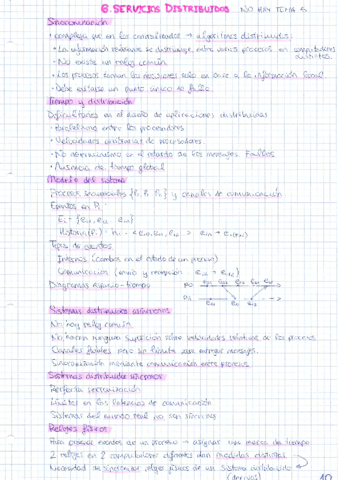 6. SERVICIOS DISTRIBUIDOS NO HAY TEMA 5
Sincronización
• compleja que en los centralizados → algoritmos distribuidos.
• La información relevante se distribuye entre varios procesos en computadores distintos
• No existe un reloj común
• Los procesos toman las decisiones solo en base a la información local
• Debe evitarse un punto único de fallo
Tiempo y distribución
Dificultades en el diseño de aplicaciones distribuidas
• Paralelismo entre los procesadores
• Velocidades arbitrarias de procesadores.
• No determinismo en el retardo de los mensajes. Fallos
• Ausencia de tiempo global
Modelo del sistema
Procesos secuenciales {P1, P2, Pn} y canales de comunicación
Eventos en Pi
Ei = {ei1, ei2, ein}
Historia(Pi) = hi = <ei0, ei1, ei2 > ei → ei(k+1)
Tipos de eventos
Internos (cambios en el estado de un proceso)
Comunicación (envío y recepción
Diagramas espacio-tiempo P0
P1
Sistemas distribuidos asíncronos
No hay reloj común
No hacen ninguna suposición sobre velocidades relativas de los procesos.
Canales fiables pero sin límite para entregar mensajes.
Sincronización mediante comunicación entre procesos
Sistemas distribuidos síncronos
Perfecta sincronización
Límites en las latencias de comunicación
Sistemas del mundo real no son síncronos
Relojes físicos
Para ordenar eventos de un proceso → asignar una marca de tiempo
2 relojes en 2 computadores diferentes dan medidas distintas
Necesidad de sincronizar relojes físicos de un sistema distribuido
(derivas) 10